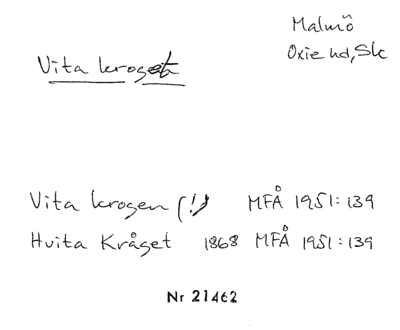 Malmö
Oxie hd, Sk
Vita kroget
Vita krogen (!) MFÅ 1951:139
Hvita Kråget 1868 MFÅ 1951:139
Nr 21462